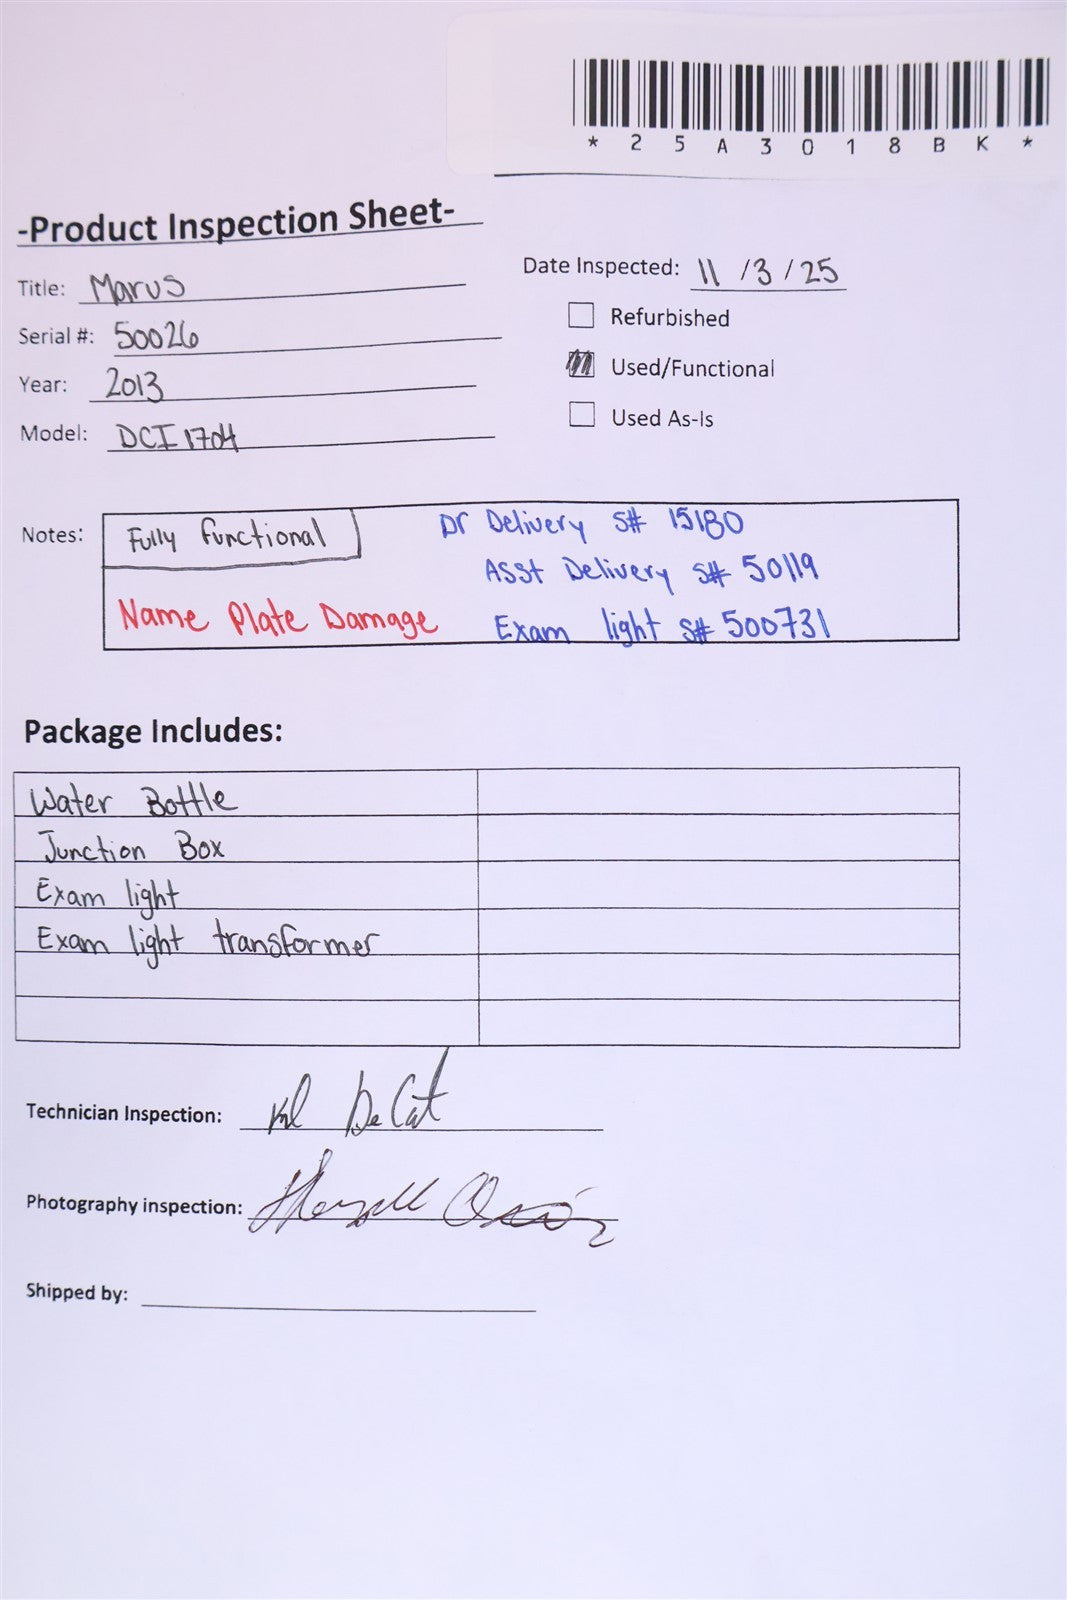 * 2 5 A 3 0 1 8 B K *
-Product Inspection Sheet-
Title: Marus
Date Inspected: 11 /3 / 25
Serial #: 50026
Refurbished
Year: 2013
Used/Functional
Model: DCI 1704
Used As-Is
Notes: Fully functional
Dr Delivery S# 15180
Asst Delivery S# 50119
Name Plate Damage
Exam light S# 500731
Package Includes:
Water Bottle
Junction Box
Exam light
Exam light transformer
Technician Inspection:
Photography inspection:
Shipped by: